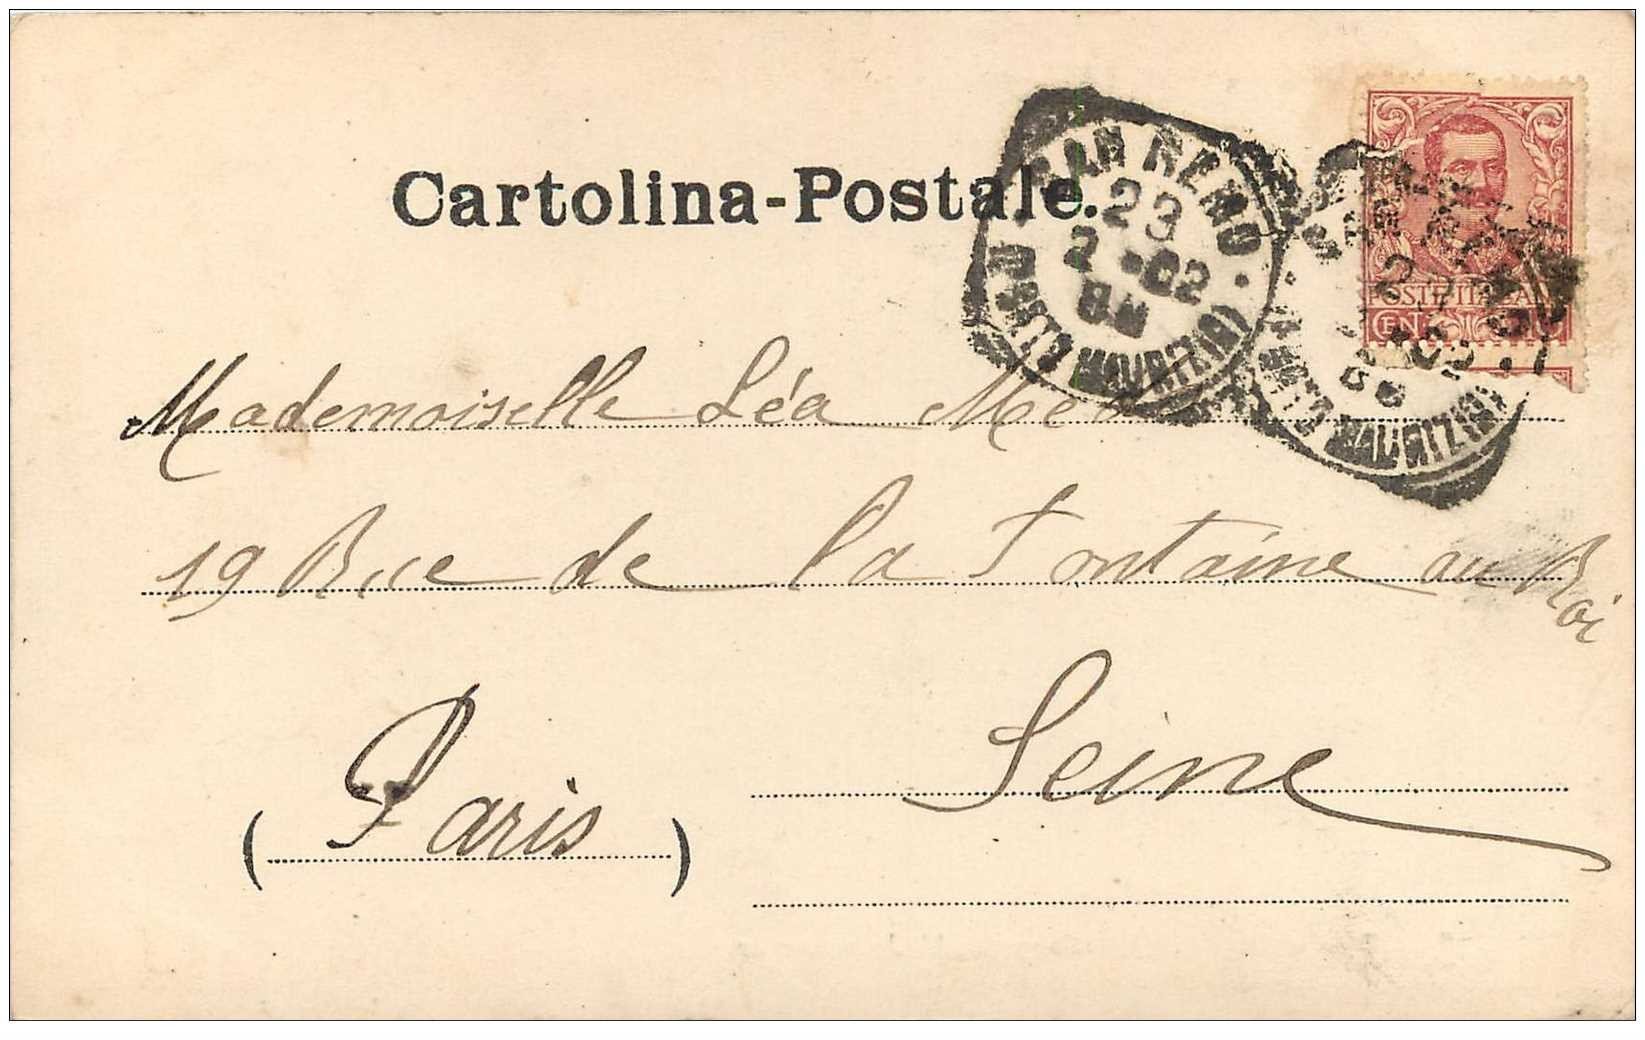 Cartolina-Postale.
SAN REMO
23
2-02
8M
(PORTO MAURIZIO)
POSTE ITALIANE
CEN.
(PORTO MAURIZIO)
Mademoiselle Léa
19 Rue de la Fontaine au Roi
Seine
(Paris)